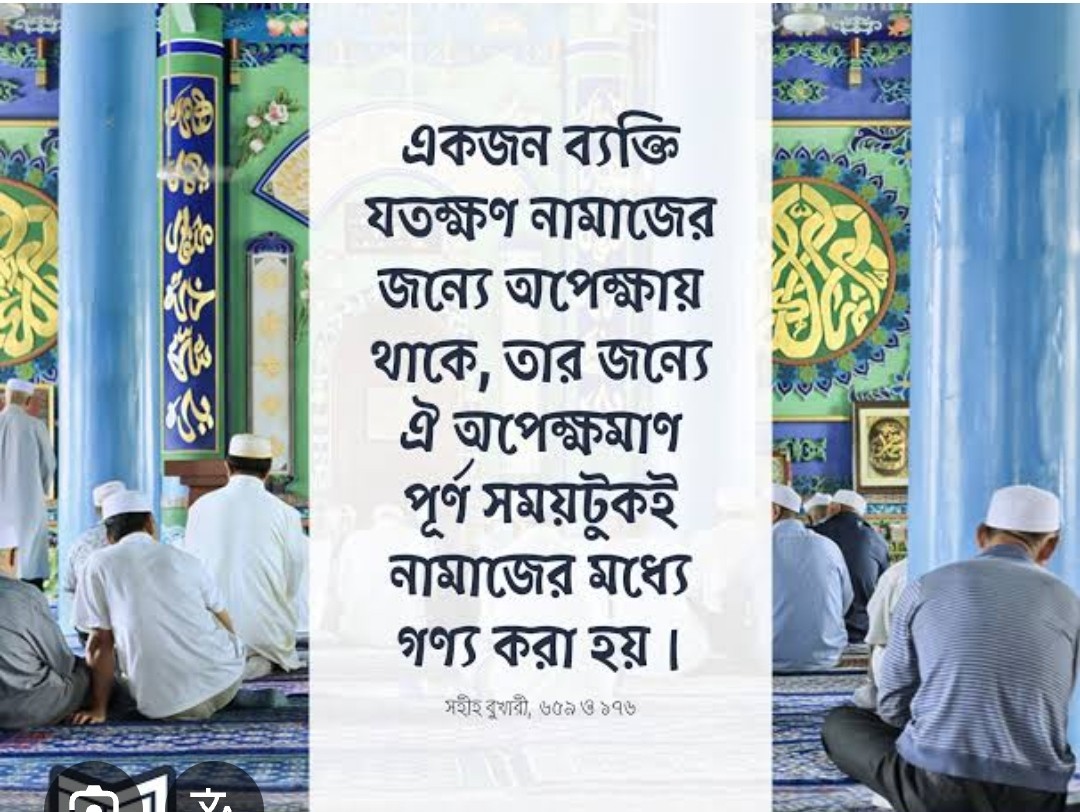 একজন ব্যক্তি
যতক্ষণ নামাজের
জন্যে অপেক্ষায়
থাকে, তার জন্যে
ঐ অপেক্ষমাণ
পূর্ণ সময়টুকই
নামাজের মধ্যে
গণ্য করা হয় ।
সহীহ বুখারী, ৬৫৯ ও ১৭৬